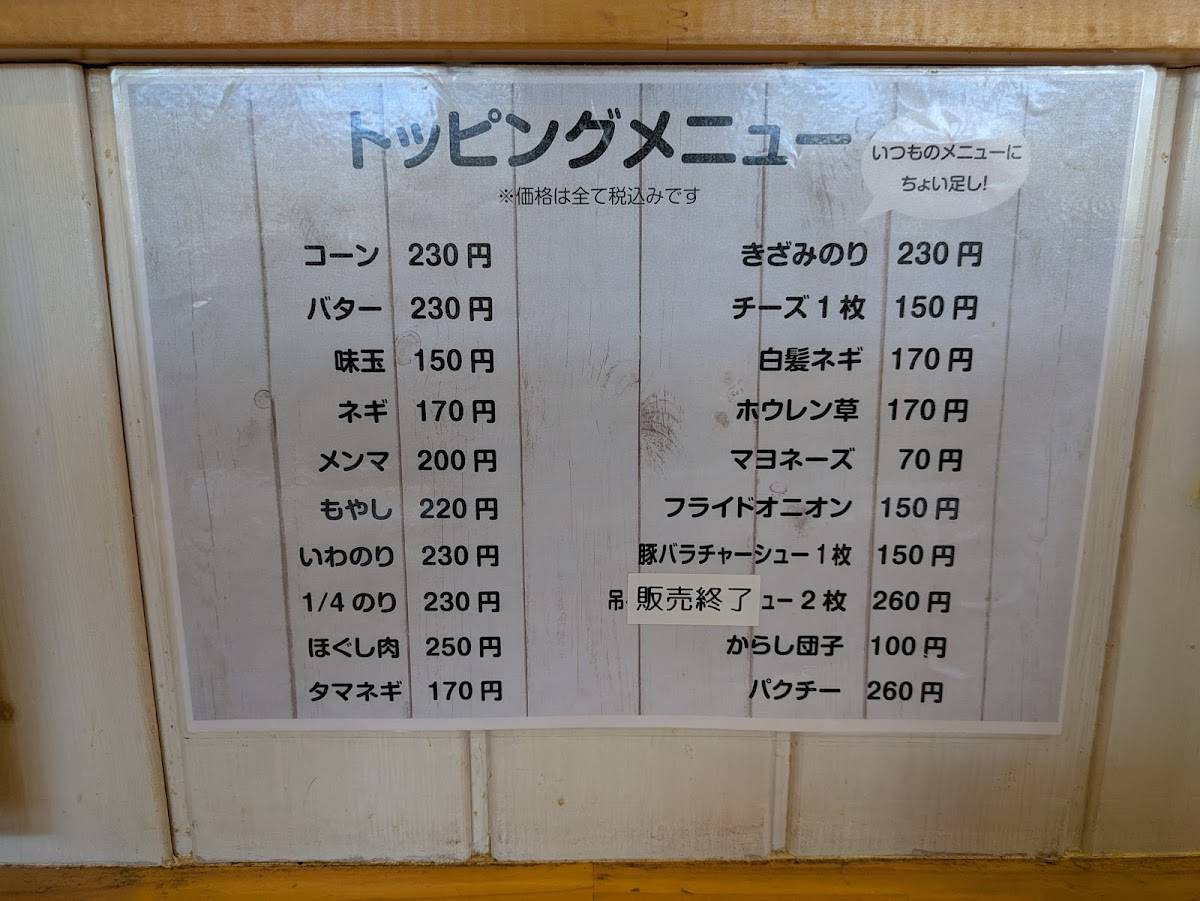 トッピングメニュー
いつものメニューに
ちょい足し!
※価格は全て税込みです
コーン 230円
バター 230円
味玉 150円
ネギ 170円
メンマ 200円
もやし 220円
いわのり 230円
1/4のり 230円
ほぐし肉 250円
タマネギ 170円
きざみのり 230円
チーズ1枚 150円
白髪ネギ 170円
ホウレン草 170円
マヨネーズ 70円
フライドオニオン 150円
豚バラチャーシュー1枚 150円
吊 販売終了 ュー2枚 260円
からし団子 100円
パクチー 260円